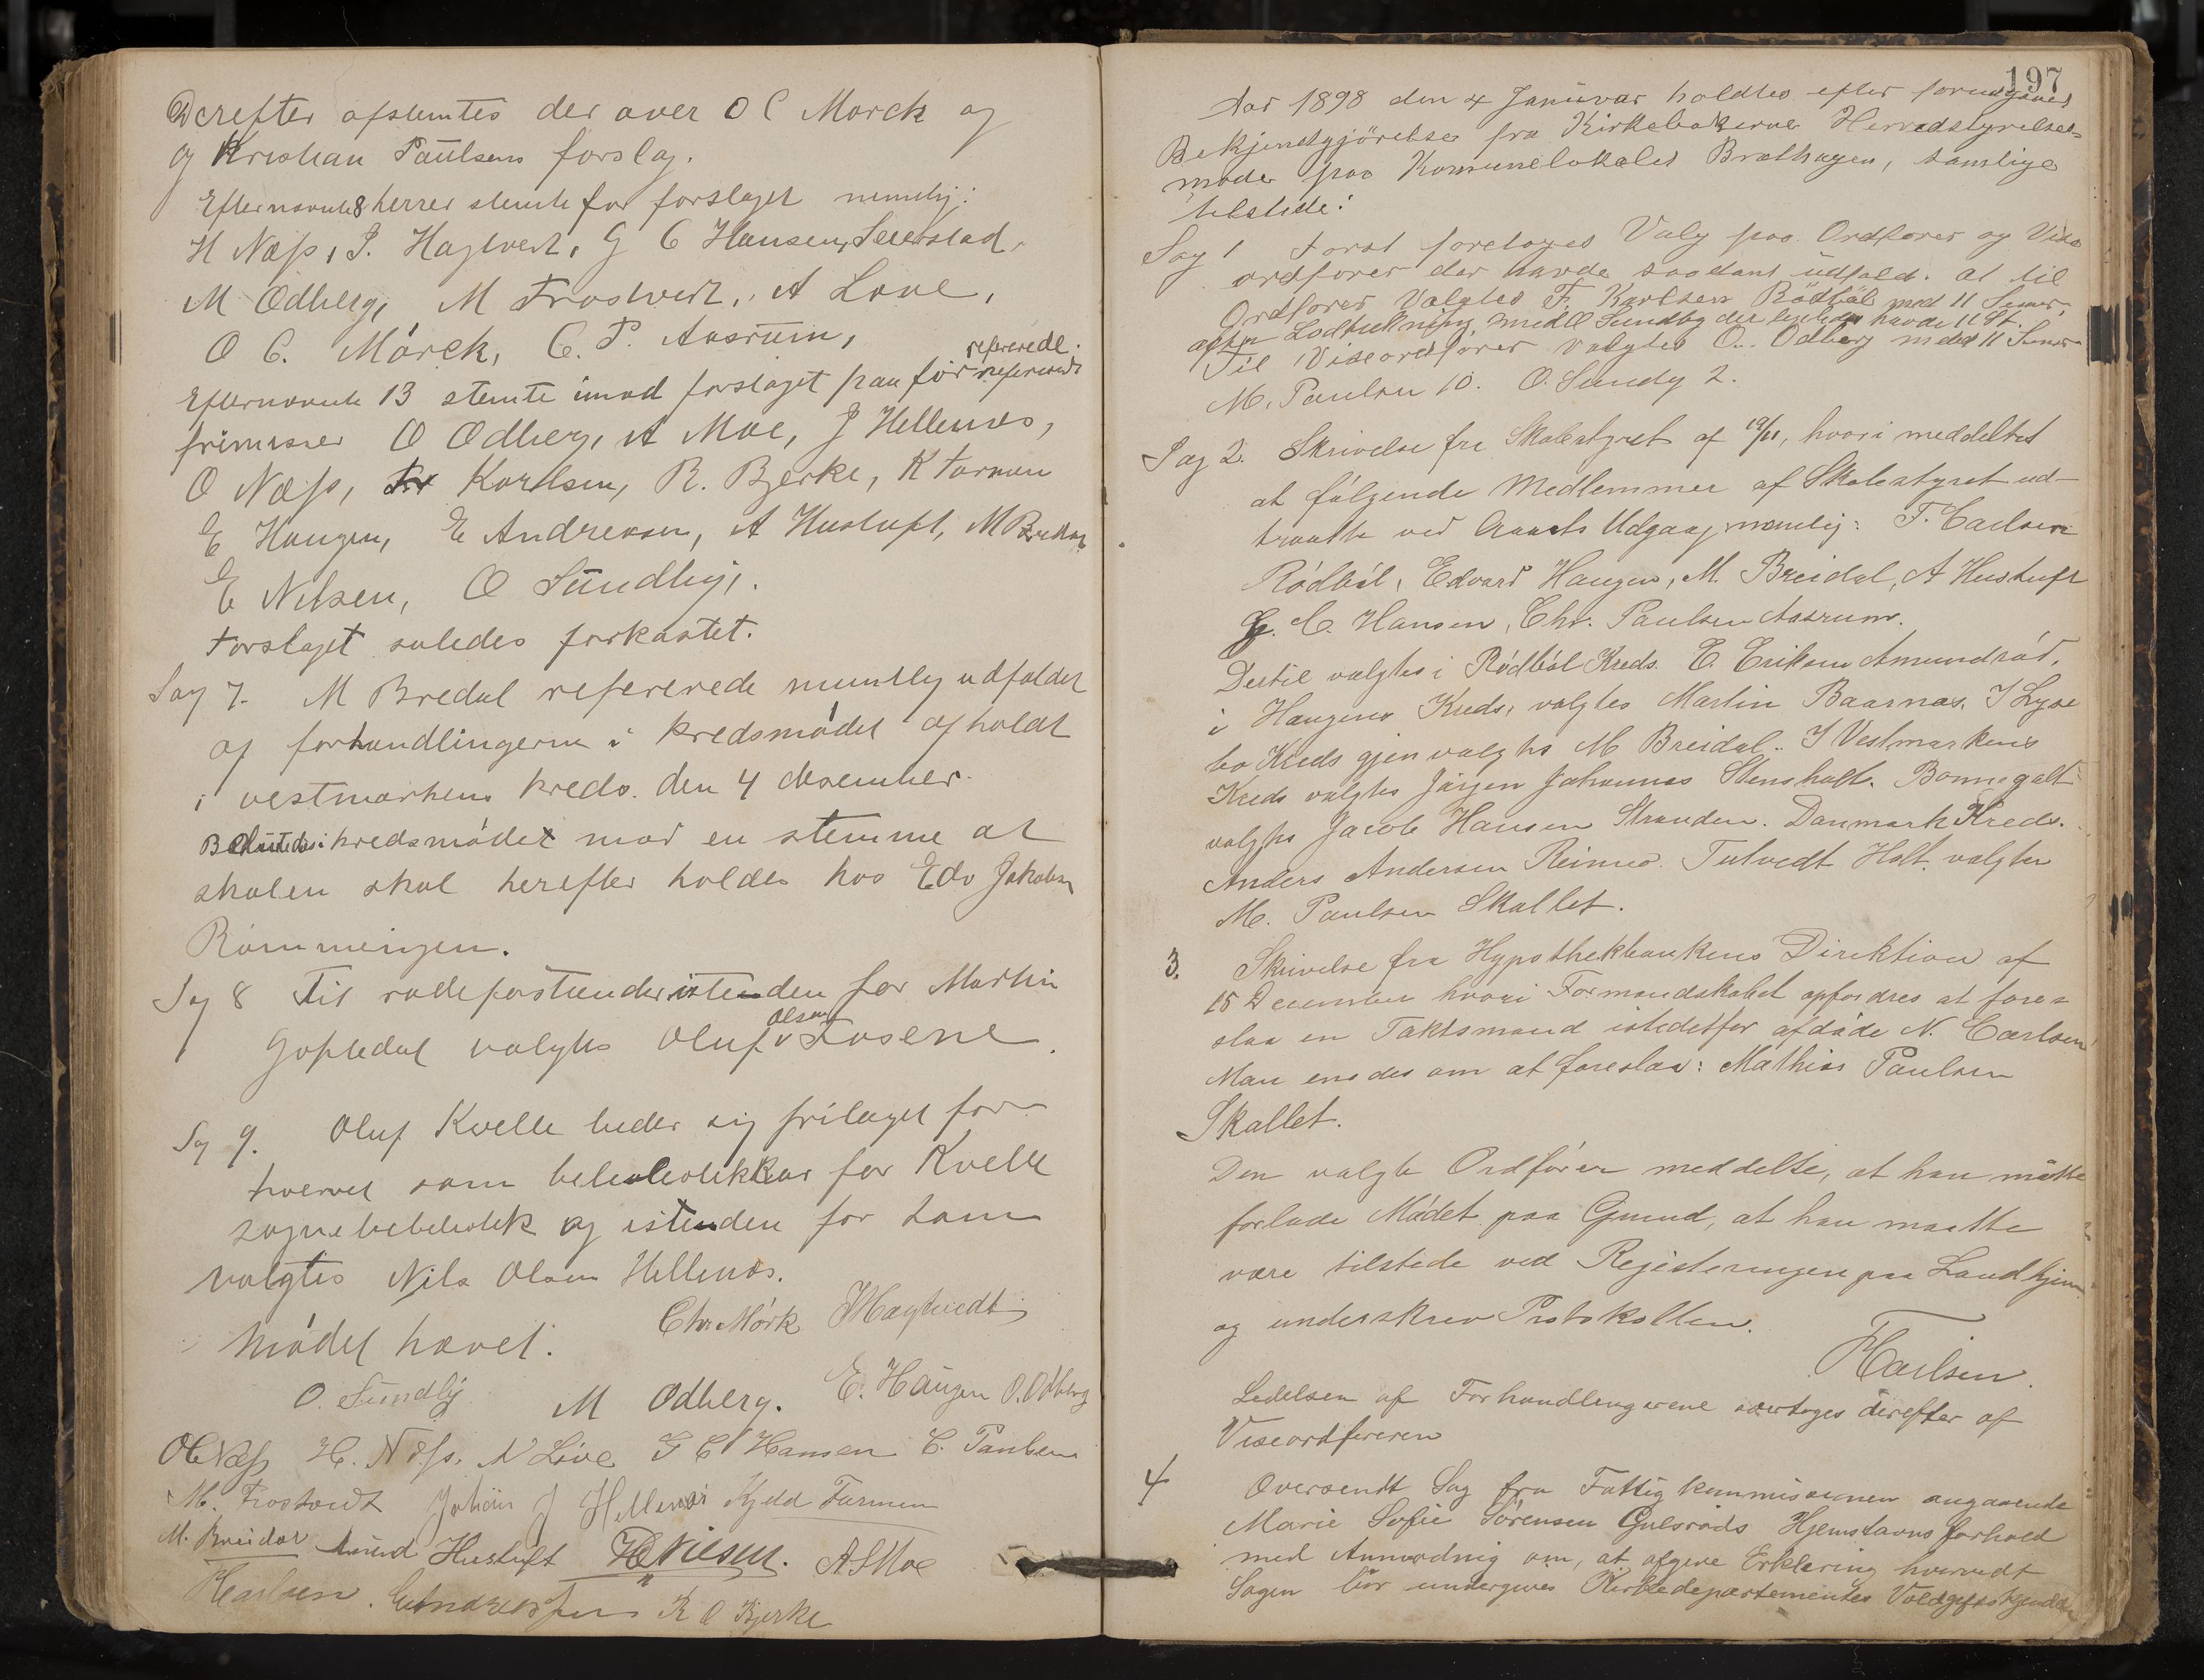 Derefter afstemtes der over O C Morck og
og Kristian Paulsens forslag.
Efternevnte 8 herrer stemte for forslaget nemlig:
H Næss, J. Hagtvedt, G C Hansen, Seierstad,
M Odberg, M Frostvedt, A Love,
O C. Mörck, C. P. Aasrum,
Efternevnte 13 stemte imod forslaget paa før refererede
refererede.
primisser O Odberg, A Moe, J Hellenes,
O Næss, Karlsen, R. Bjerke, K Farmen
E Haugen, E Andreasen, A Hustuft, M Breidal
E Nilsen, O Sundby,.
Forslaget saledes forkastet.
Sag 7. M Bredal refererede muntlig udfaldet
af forhandlingerne i kredsmødet afholdt
i vestmarkens kreds den 4 desember.
Besluttedes i kredsmødet mod en stemme at
skolen skal herefter holdes hos Edv Jakobsen
Römmingen.
Sag 8 Til rodeforstander istenden for Martin
Gopledal valgtes Oluf Olsen Fosene.
Sag 9. Oluf Kvelle beder sig fritaget for
hvervet som bebeliotekkar for Kvelle
sognebebeliotek og istenden for ham
valgtes Nils Olsen Hellenes.
Mödet hævet.
Chr Mörk JHagtvedt
O. Sundby M Odberg. E. Haugen O. Odberg
OC Næss H. Næss. A Löve G C Hansen C. Paulsen
M. Frostvedt Johan J Hellenes Kjeld Farmen
M. Breidal Amund Hustuft E Nilsen. A S Moe
FCarlsen. E Andreassen R O Bjerke
197
Aar 1898 den 4 Januar holdtes efter forudgaaet
Bekjendtgjörelse fra Kirkebakkerne Herredstyrelses=
møde paa Komunelokalet Brathagen, samtlige
tilstede:
Sag 1 Forst foretoges Valg paa Ordforer og Vise
ordforer der havde saadant udfald. at til
Ordforer Valgtes F. Karlsen Rödböl med 11 Stemer,
efter Lodtrekning med O Sundby der ligeledes havde 11 St.
Til Viseordforer valgtes O. Odberg med 11 Stemer
M. Paulsen 10. O. Sundy 2.
Sag 2. Skrivelse fra Skolestyret af 19/11, hvori meddeltes
at følgende Medlemmer af Skolestyret ud-
traatte ved Aarets Udgang, nemlig: F. Carlsen
Rödböl, Edvard Haugen, M. Breidal, A Hustuft
G. C. Hansen, Chr. Paulsen Aasrum.
Dertil valgtes i Rödböl Kreds E. Eriksen Amundröd,
i Haugens Kreds, valgtes Martin Baarnæs. I Lyse
bo Kreds gjenvalgtes M Breidal. I Vestmarkens
Kreds valgtes Jörgen Johannes Stensholt. Bommegalt
valgtes Jacob Hansen Stranden. Danmark Kreds.
Anders Andersen Reimes. Tutvedt Holt valgtes
M. Paulsen Skallet.
3. Skrivelse fra Hypothekbankens Direktion af
15 December hvori Formandskabet opfordres at fore=
slaa en Takstmand istedetfor afdöde N. Carlsen
Man enedes om at foreslaa: Mathias Paulsen
Skallet.
Den valgte Ordförer meddelte, at han måtte
forlade Mödet paa Grund, at han maatte
være tilstede ved Registeringen paa Landhjem
og underskrev Protokollen.
FCarlsen.
Ledelsen af Forhandlingerene overtoges derefter af
Viseordføreren
4 Oversendt Sag fra Fattigkommissionen angaaende
Marie Sofie Sörensen Gulsrøds Hjemstavnsforhold
med Anmodning om, at afgive Erklæring hvorvidt
Sagen bör undergives Kirkedepartementes Voldgiftskjendelse